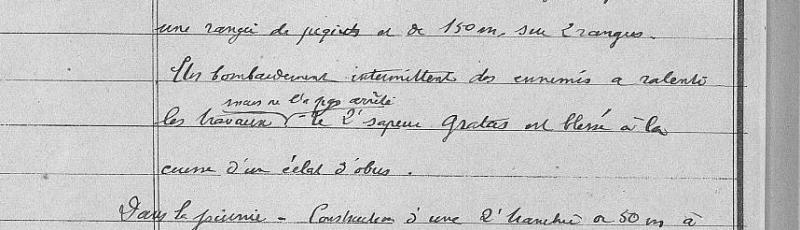 une rangée de piquets et de 150 m. sur 2 rangées.
Un bombardement intermittent des ennemis a ralenti
mais ne l'a pas arrêté
les travaux - le 2e sapeur Gratas est blessé à la
cuisse d'un éclat d'obus.
Dans la journée - Construction d'une 2e tranchée de 50 m à